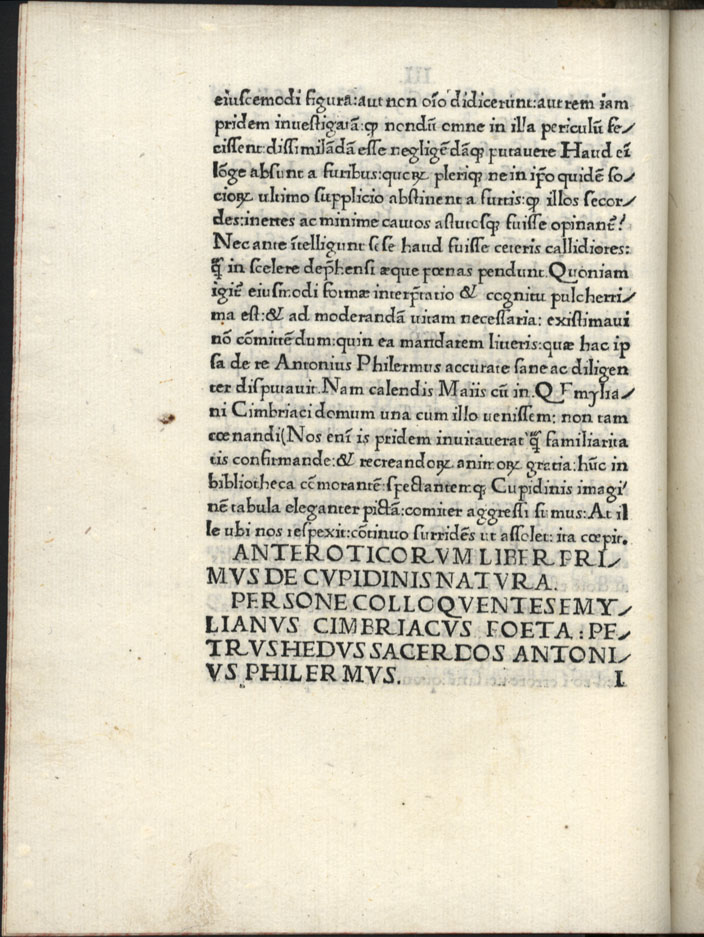 eiuscemodi figura:aut non oı̄o didicerunt:aut rem iam
pridem inuestigatā:ꝙ nondū omne in illa periculū fe⸗
cissent:dissimilādā esse negligēdāꝙ putauere Haud eı̄
lōge absunt a furibus:quoꝝ pleriqꝫ ne in ip̄o quidē so⸗
cioꝝ ultimo supplicio abstinent a furtis:ꝙ illos secor⸗
des:inertes ac minime cautos astutosqꝫ fuisse opinanť.
Nec ante ı̄telligunt sese haud fuisse ceteris callidiores:
q̄ꝫ in scelere dep̄hensi æque pœnas pendunt.Quoniam
igiť eiusmodi formæ interp̄tatio & cognitu pulcherri⸗
ma est:& ad moderandā uitam necessaria: existimaui
nō cōmittēdum:quin ea mandarem litteris:quæ hac ip
sa de re Antonius Philermus accurate sane ac diligen
ter disputauit.Nam calendis Maiis cū in.Q Emylia⸗
ni Cimbriaci domum una cum illo uenissem: non tam
cœnandi(Nos enı̄ is pridem inuitauerat)q̄ꝫ familiarita
tis confirmande:& recreandoꝝ animoꝝ gratia:hūc in
bibliotheca cōmorantē:spectantemqꝫ Cupidinis imagi
nē tabula eleganter pictā:comiter aggressi sumus:At il
le ubi nos respexit:cōtinuo surridēs ut assolet: ita cœpit.
ANTEROTICORVM LIBER PRI⸗
MVS DE CVPIDINIS NATVRA.
PERSONE COLLOQVENTES EMY⸗
LIANVS CIMBRIACVS POETA : PE⸗
TRVS HEDVS SACERDOS ANTONI⸗
VS PHILERMVS. I